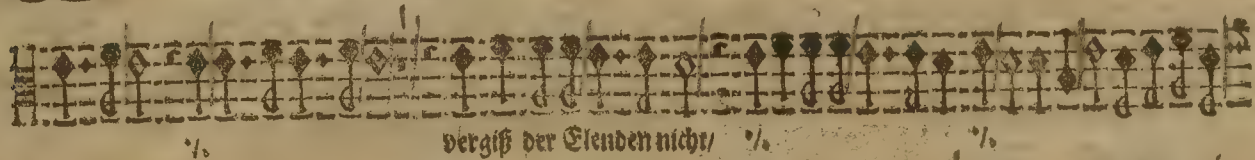 ·/. vergiß der Elenden nicht/ ·/. ·/.